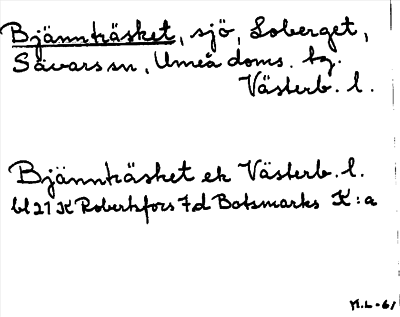 Bjännträsket, sjö, Loberget,
Sävars sn, Umeå doms. tg.
Västerb. l.
Bjännträsket ek Västerb. l.
bl 21 K Robertsfors 7d Botsmarks K:a
M.L-61